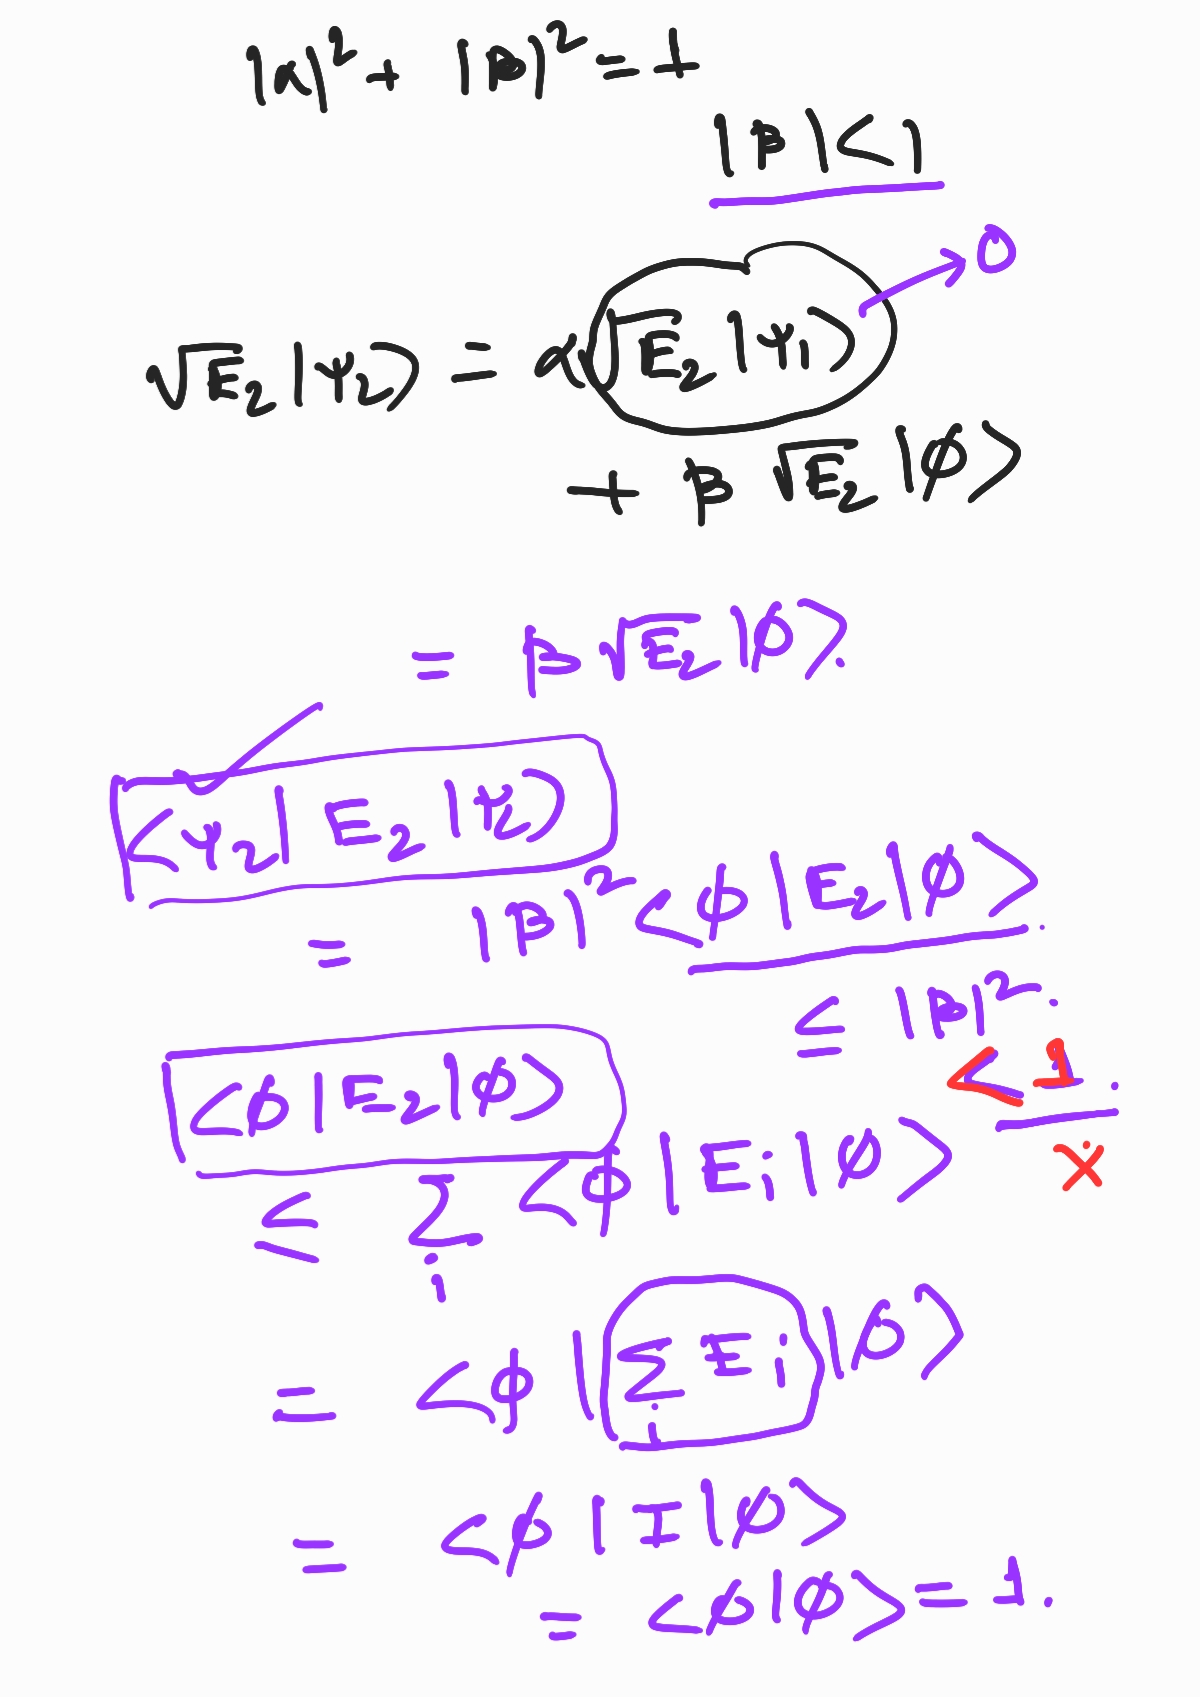 |α|² + |β|² = 1
|β| < 1
0
√E₂ |ψ₂⟩ = α √E₂ |ψ₁⟩
+ β √E₂ |ϕ⟩
= β √E₂ |ϕ⟩.
⟨ψ₂| E₂ |ψ₂⟩
= |β|² ⟨ϕ|E₂|ϕ⟩.
≤ |β|².
< 1.
×
⟨ϕ|E₂|ϕ⟩
≤ ∑ᵢ ⟨ϕ|Eᵢ|ϕ⟩
= ⟨ϕ| ∑ᵢ Eᵢ |ϕ⟩
= ⟨ϕ|I|ϕ⟩
= ⟨ϕ|ϕ⟩ = 1.